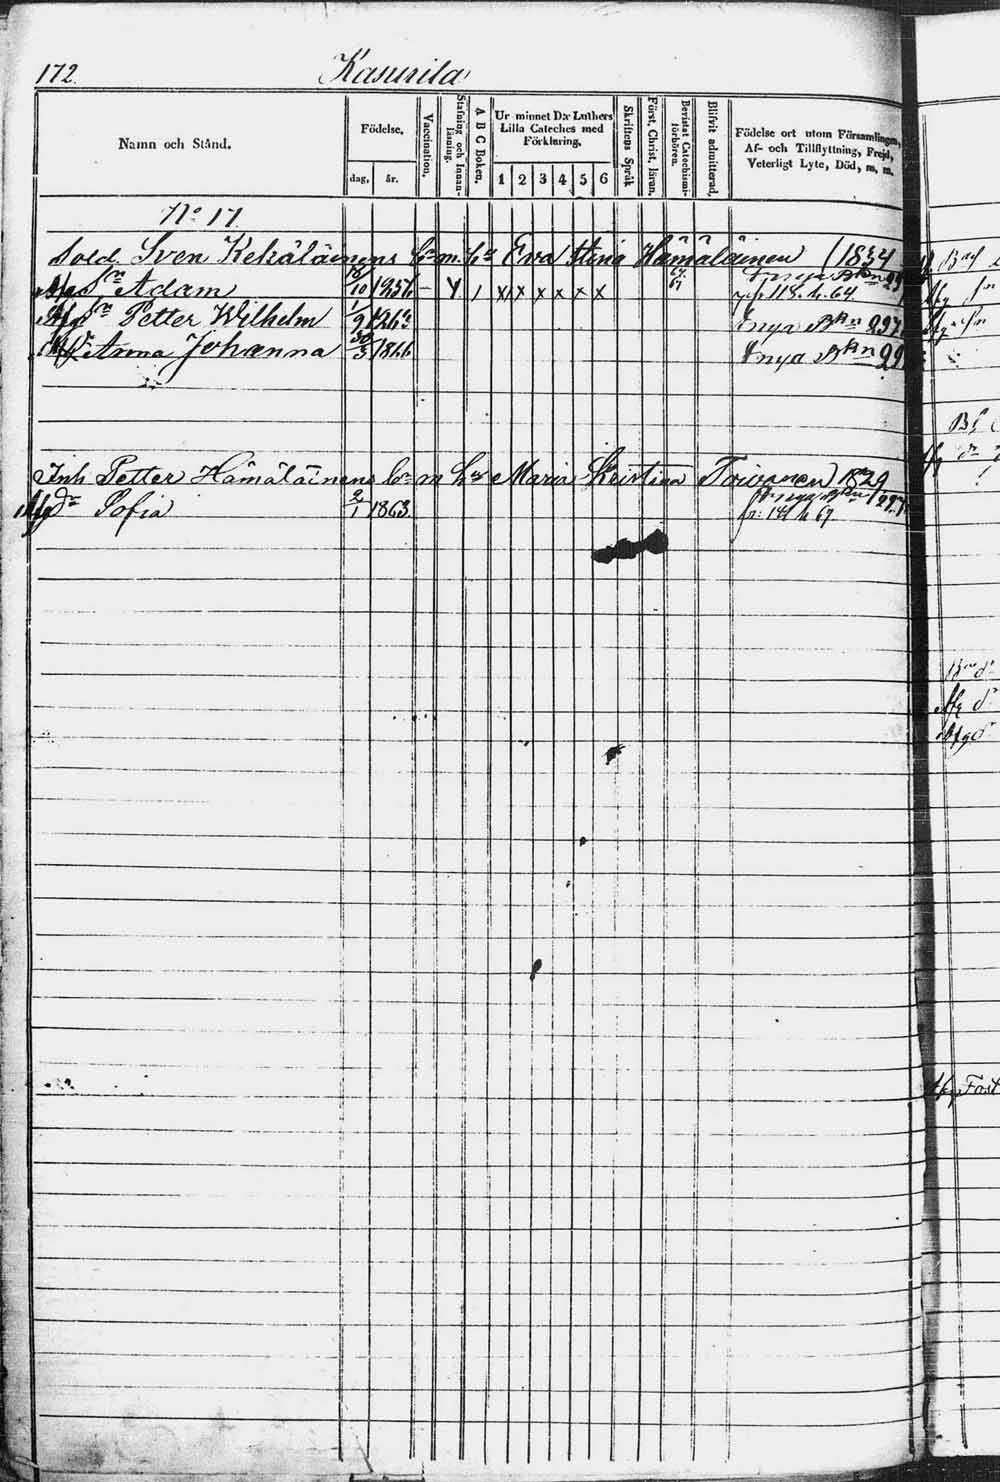 172. Kasurila
Namn och Stånd.
Födelse,
dag, år.
Vaccination.
Stafning och Innanläsning.
A B C Boken.
Ur minnet D:r Luthers Lilla Cateches med Förklaring.
1 2 3 4 5 6
Skriftens Språk
Först. Christ. läran.
Bevistat Catechismiförhören.
Blifvit admitterad.
Födelse ort utom Församlingen, Af- och Tillflyttning, Frejd, Veterligt Lyte, Död, m. m.
No 17
Sold. Sven Kekäläinens bn m. hu Eva Stina Hämäläinen (1834
Sn Adam 10 1856 — Y / x x x x x x 64. 67 nya Bkn
118. h. 64.
Sn Petter Wilhelm 1/9 nya Bkn 297
Dr Anna Johanna 30/3 1866 nya Bkn
Inh Petter Hämäläinens bn m hu Maria Kristina Toivanen 1829
dr Sofia 2/1 1863. nya Bkn 297
141 h 67.
Fost